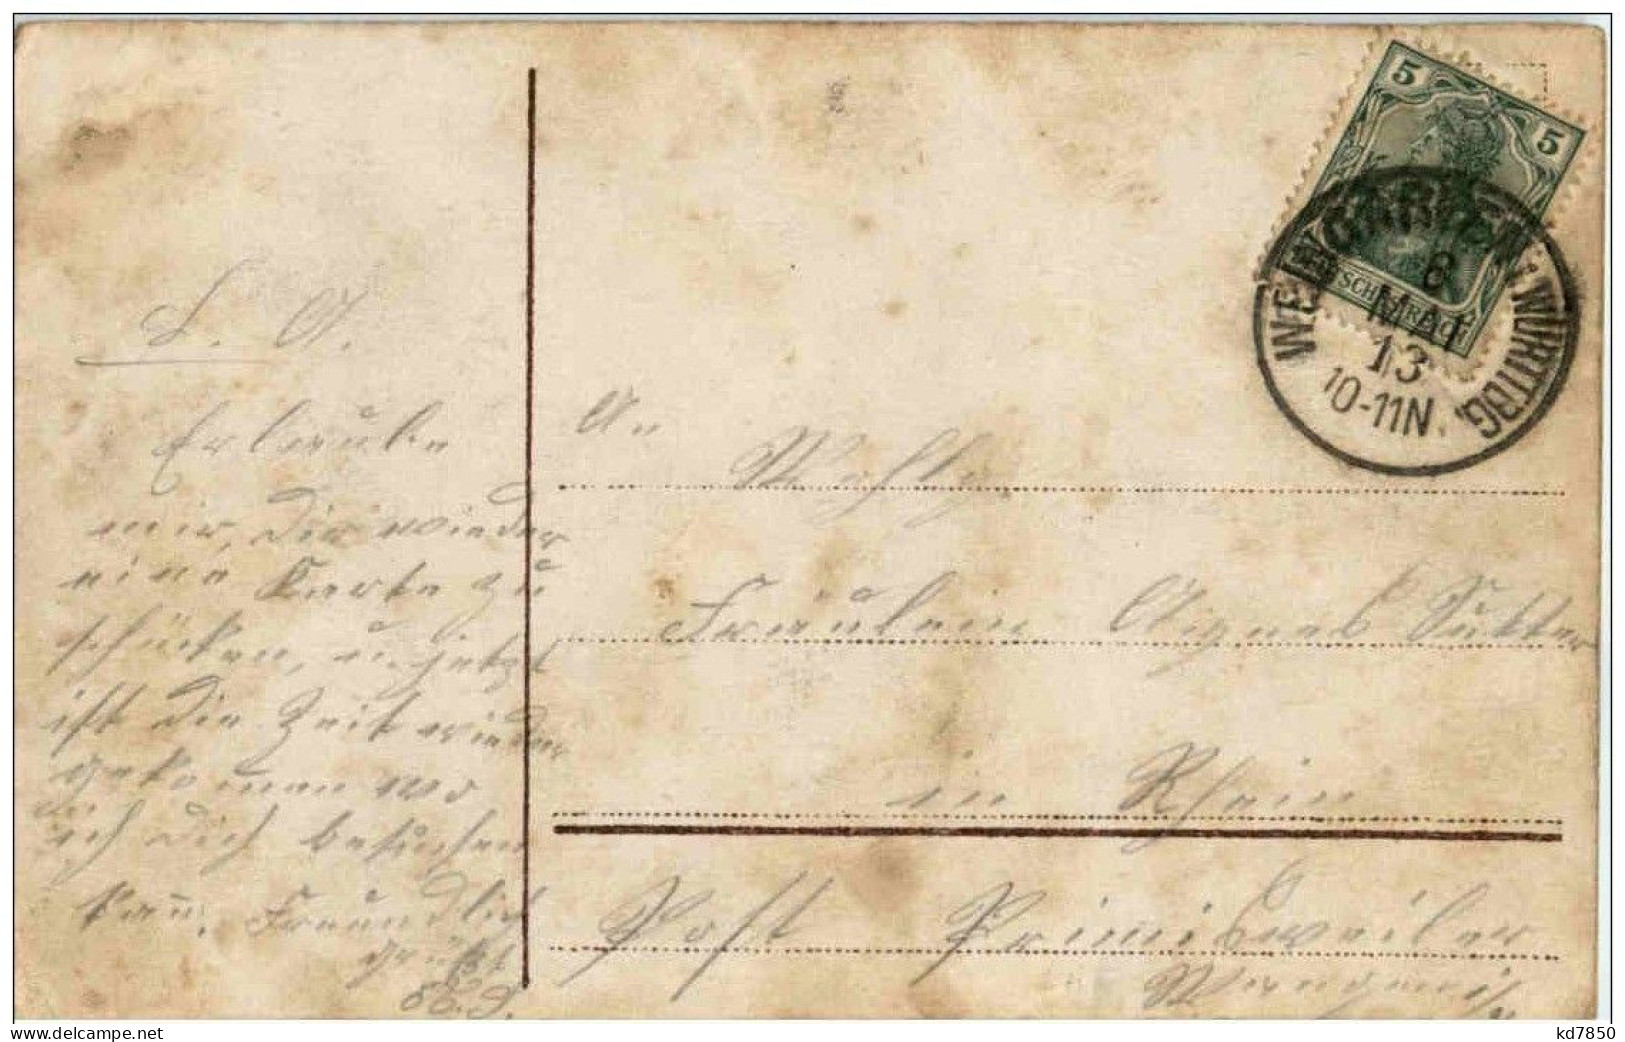 5
5
DEUTSCHES REICH
WEINGARTEN, WÜRTTBG.
8
MAI
13
10-11N.
L. A.
Erlaube
mir, dir wieder
eine Karte zu
schücken, u. jetzt
ist die Zeit wieder
gekommen wo
ich dich besuchen
kann. Freundlich
grüßt
An
Fräulein Agnes Sutter
in Rhein
Post Primisweiler
delcampe.net
kd7850